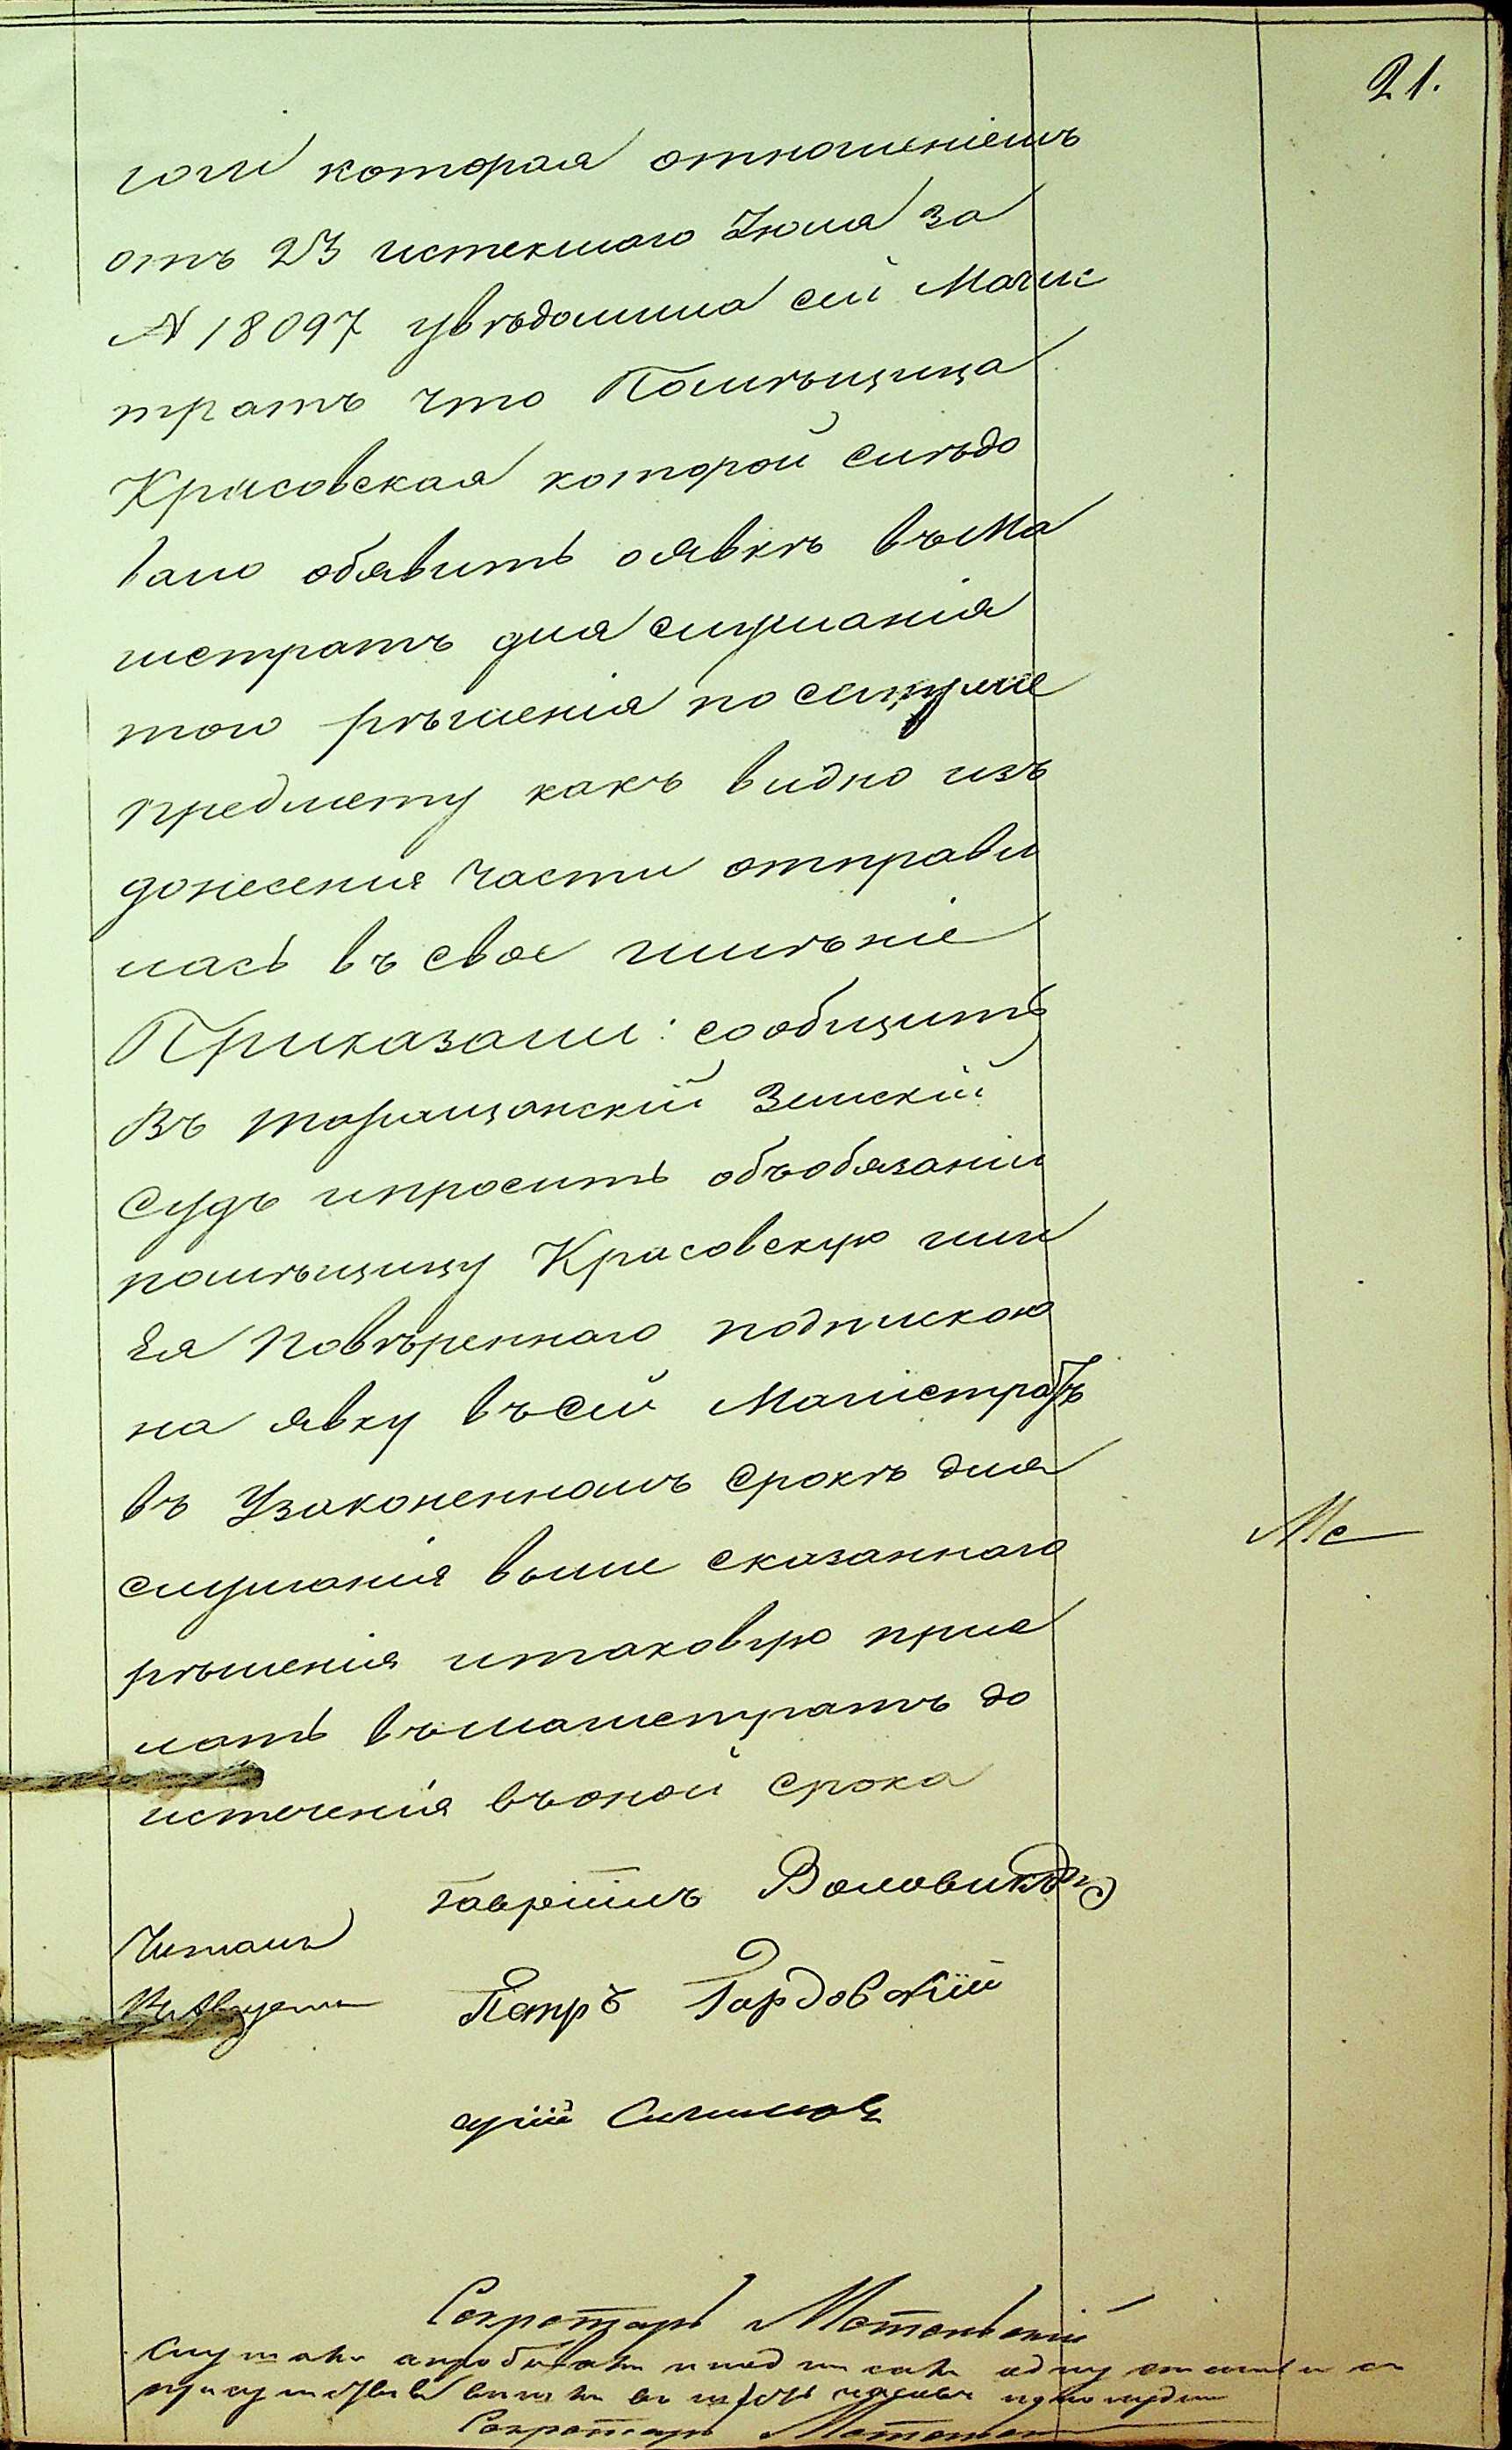 21.
гоги которая отношеніемъ
отъ 23 истекшаго Іюля за
№ 18097 увѣдомила сей Магис
тратъ что Помѣщица
Красовская которой слѣдо
вало обявить оявкѣ въ Ма
гистратъ для слушанія
того рѣшенія по
предмету какъ видно изъ
донесенія части отправи
лась въ свое имѣніе
Приказали: сообщить
въ Таращанскій Земскій
судъ ипросить объобязаніи
помѣщицу Красовскую или
Ея Повѣреннаго подпискою
на явку въсей Магистратъ
въ Узаконенномъ срокѣ для
слушанія выше сказаннаго
рѣшенія итаковую прис
лать въмагистратъ до
истеченія въоной срока
Гавріилъ Воловикъ
Читалъ
Петръ Гордовскій
Секретарь
Слушали апробовали иподписали одну статью
Секретарь